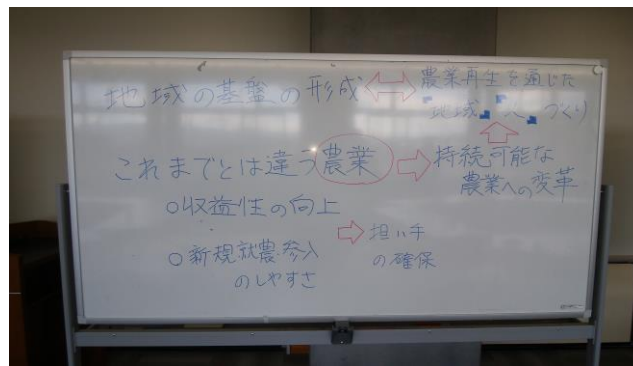 地域の基盤の形成 ⇔ 農業再生を通じた
『地域』『人』づくり
これまでとは違う農業 ⇨ 持続可能な
農業への変革
○収益性の向上
○新規就農・参入
のしやすさ
⇨ 担い手
の確保